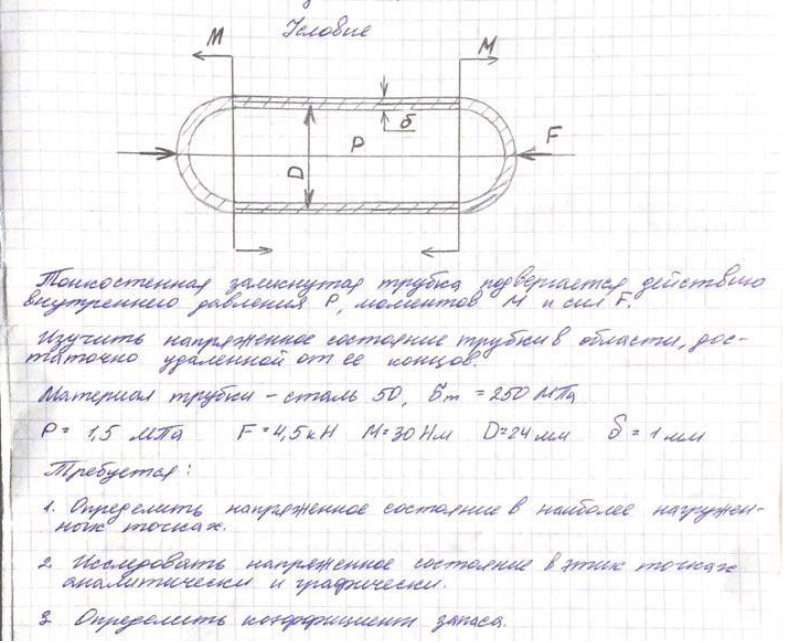 Условие
M
M
δ
P
F
D
Тонкостенная замкнутая трубка подвергается действию
внутреннего давления P, моментов M и сил F.
Изучить напряженное состояние трубки в области, дос-
таточно удаленной от ее концов.
Материал трубки – сталь 50, бт = 250 МПа
P = 1,5 МПа F = 4,5 кН M = 30 Нм D = 24 мм δ = 1 мм
Требуется:
1. Определить напряженное состояние в наиболее нагружен-
ных точках.
2. Исследовать напряженное состояние в этих точках
аналитически и графически.
3 Определить коэффициент запаса.